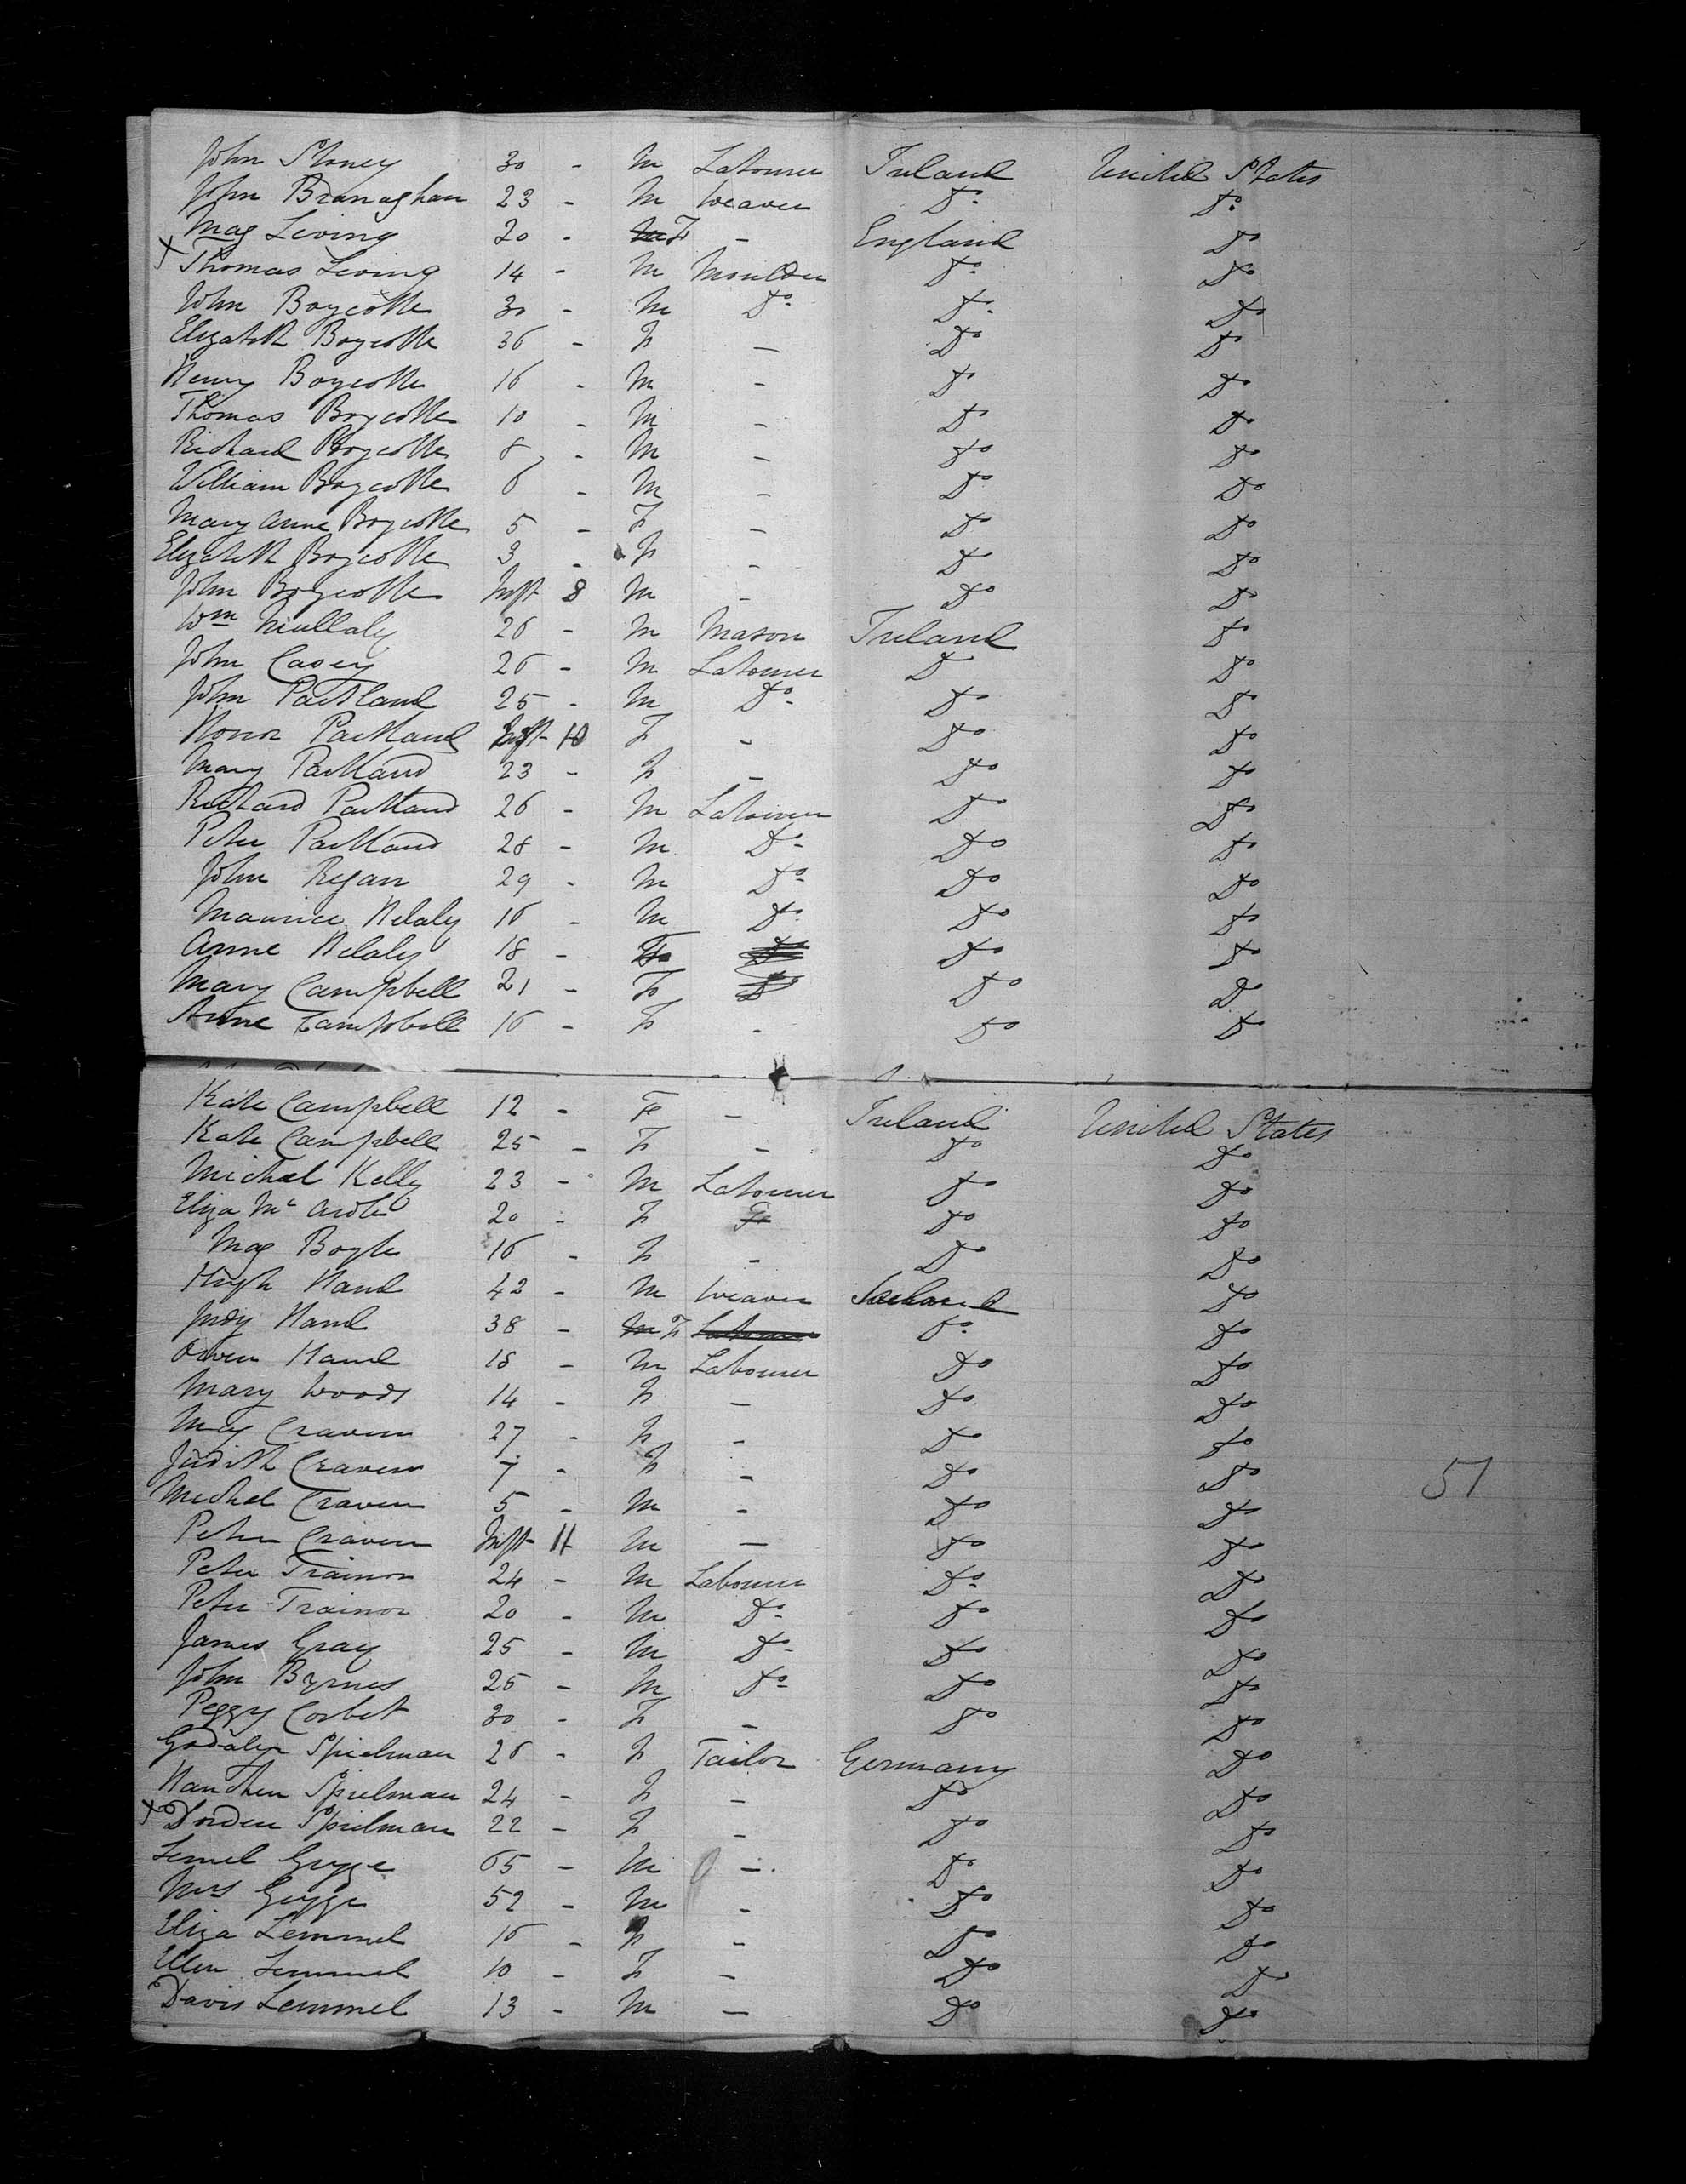 John Stoney 30 - M Labourer Ireland United States
John Branaghan 23 - M Weaver Do Do
Mag Living 20 - M F - England Do
x Thomas Living 14 - M Moulder Do Do
John Boycotte 30 - M Do Do Do
Elizabeth Boycotte 36 - F - Do Do
Henry Boycotte 16 - M - Do Do
Thomas Boycotte 10 - M - Do Do
Richard Boycotte 8 - M - Do Do
William Boycotte 6 - M - Do Do
Mary Anne Boycotte 5 - F - Do Do
Elizabeth Boycotte 3 - F - Do Do
John Boycotte Inft 8 M - Do Do
Wm Mullaly 26 - M Mason Ireland Do
John Casey 26 - M Labourer Do Do
John Partland 25 - M Do Do Do
Honor Partland Inft 10 F - Do Do
Mary Partland 23 - F - Do Do
Richard Partland 26 - M Labourer Do Do
Peter Partland 28 - M Do Do Do
John Regan 29 - M Do Do Do
Maurice Helaly 16 - M Do Do Do
Anne Helaly 18 - F Do Do Do
Mary Campbell 21 - F Do Do Do
Anne Campbell 16 - F - Do Do
Kate Campbell 12 - F - Ireland United States
Kate Campbell 25 - F - Do Do
Michael Kelly 23 - M Labourer Do Do
Eliza Mc Ardle 20 - F F Do Do
Mag Boyle 16 - F - Do Do
Hugh Hand 42 - M Weaver Ireland Do
Judy Hand 38 - M F Labourer Do Do
Owen Hand 18 - M Labourer Do Do
Mary Woods 14 - F - Do Do
May Craven 27 - F - Do Do
Judith Craven 7 - F - Do Do
Michel Craven 5 - M - Do Do
51
Peter Craven Inft 11 M - Do Do
Peter Trainor 24 - M Labourer Do Do
Peter Trainor 20 - M Do Do Do
James Gray 25 - M Do Do Do
John Byrnes 25 - M Do Do Do
Peggy Corbet 30 - F - Do Do
Spielman 26 - F Tailor Germany Do
Hanchen Spielman 24 - F - Do Do
x Dorden Spielman 22 - F - Do Do
65 - M - Do Do
Mrs 52 - M - Do Do
Eliza Lemmel 16 - F - Do Do
Ellen Lemmel 10 - F - Do Do
Davis Lemmel 13 - M - Do Do